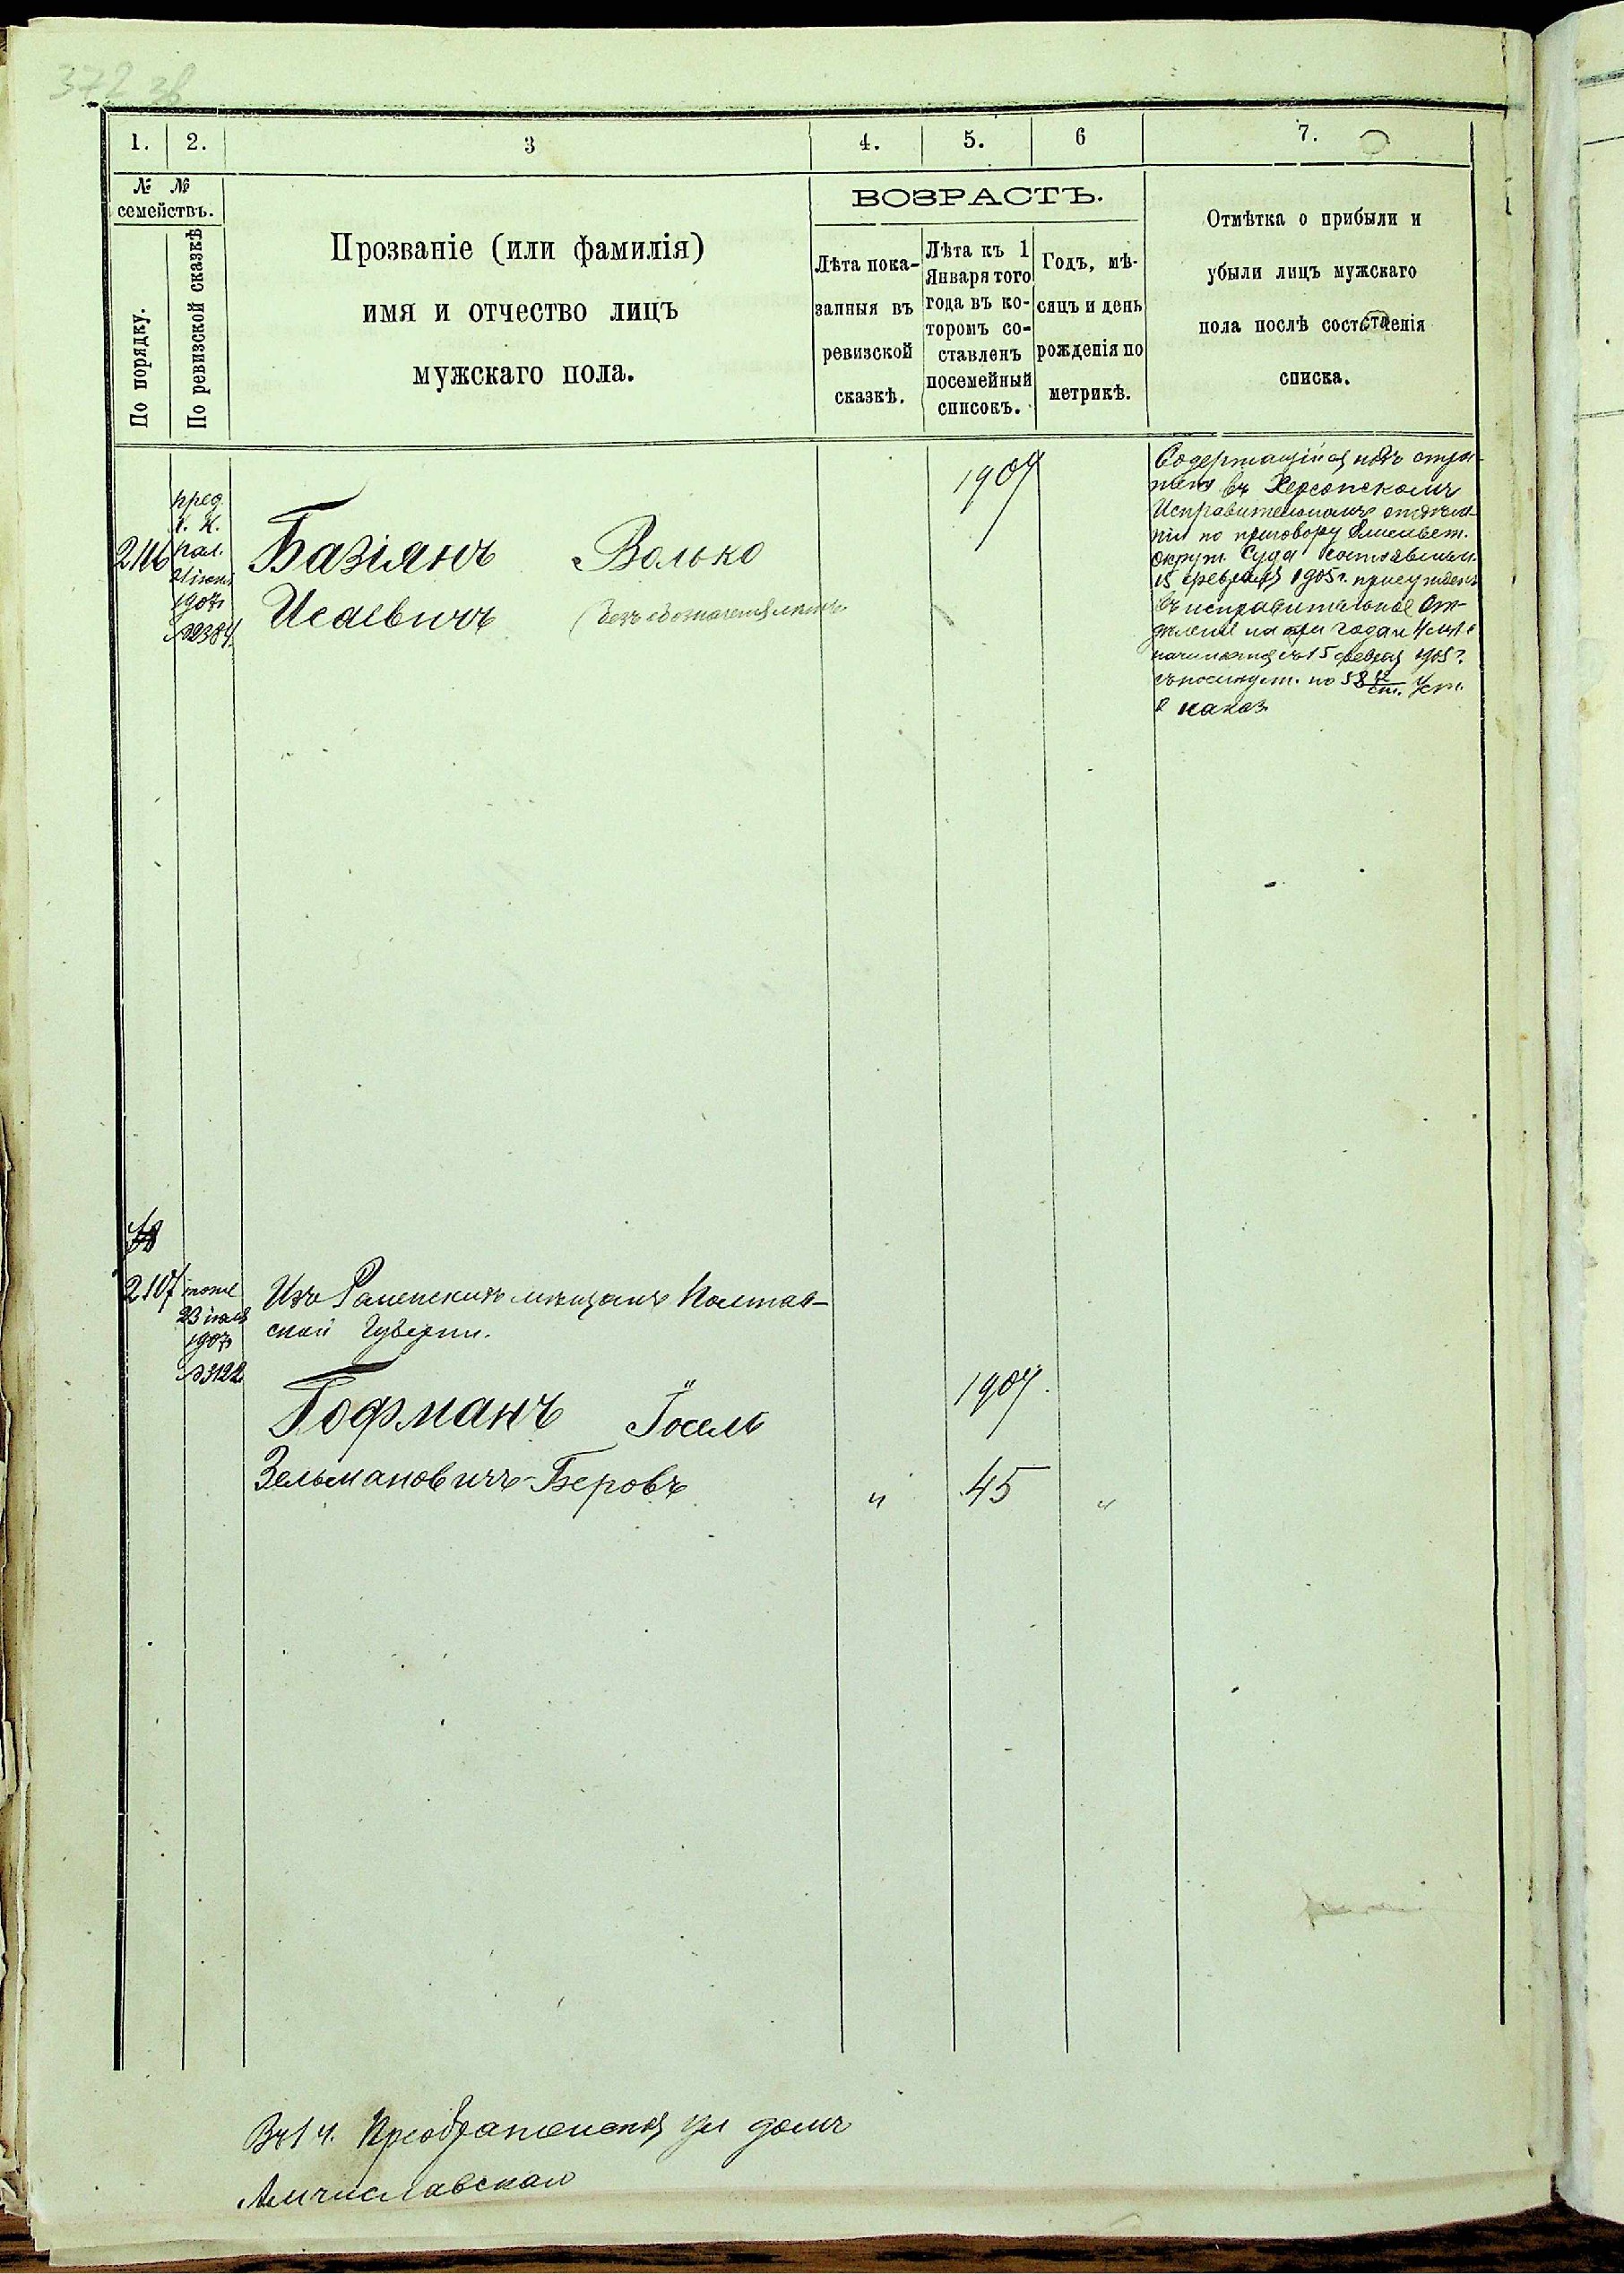 372 зв
1. 2. 3 4. 5. 6 7.
№ №
семействъ.
По порядку.
По ревизской сказкѣ
Прозваніе (или фамилія)
имя и отчество лицъ
мужскаго пола.
ВОЗРАСТЪ.
Лѣта пока-
занныя въ
ревизской
сказкѣ.
Лѣта къ 1
Января того
года въ ко-
торомъ со-
ставленъ
посемейный
списокъ.
Годъ, мѣ-
сяцъ и день
рожденія по
метрикѣ.
Отмѣтка о прибыли и
убыли лицъ мужскаго
пола послѣ составленія
списка.
2106
пред.
х. к.
пал.
21
1907
№2384
Базіянъ Волько
Исаевичъ (безъ обозначенія лѣтъ
1907
Содержащійся подъ стра-
жею въ Херсонскомъ
Исправительномъ отдѣле-
ніи по приговору Елисавет.
Окруж. Суда состоявшем.
15 февраля 1905 г. присужденъ
въ исправительное От-
дѣленіе на три года и 4 мѣс.
начиная съ 15 февраля 1905 г.
съ послѣдст. по 58 ст. Уст.
о наказ.
2107
тоже
23 іюля
1907
№3122
Изъ Раненскихъ мѣщанъ Полтав-
ской Губерніи.
Гофманъ Іосель
Зельмановичъ-Беровъ
1907.
" 45 "
Въ 1 ч. Преображенская ул домъ
Амчиславскаго